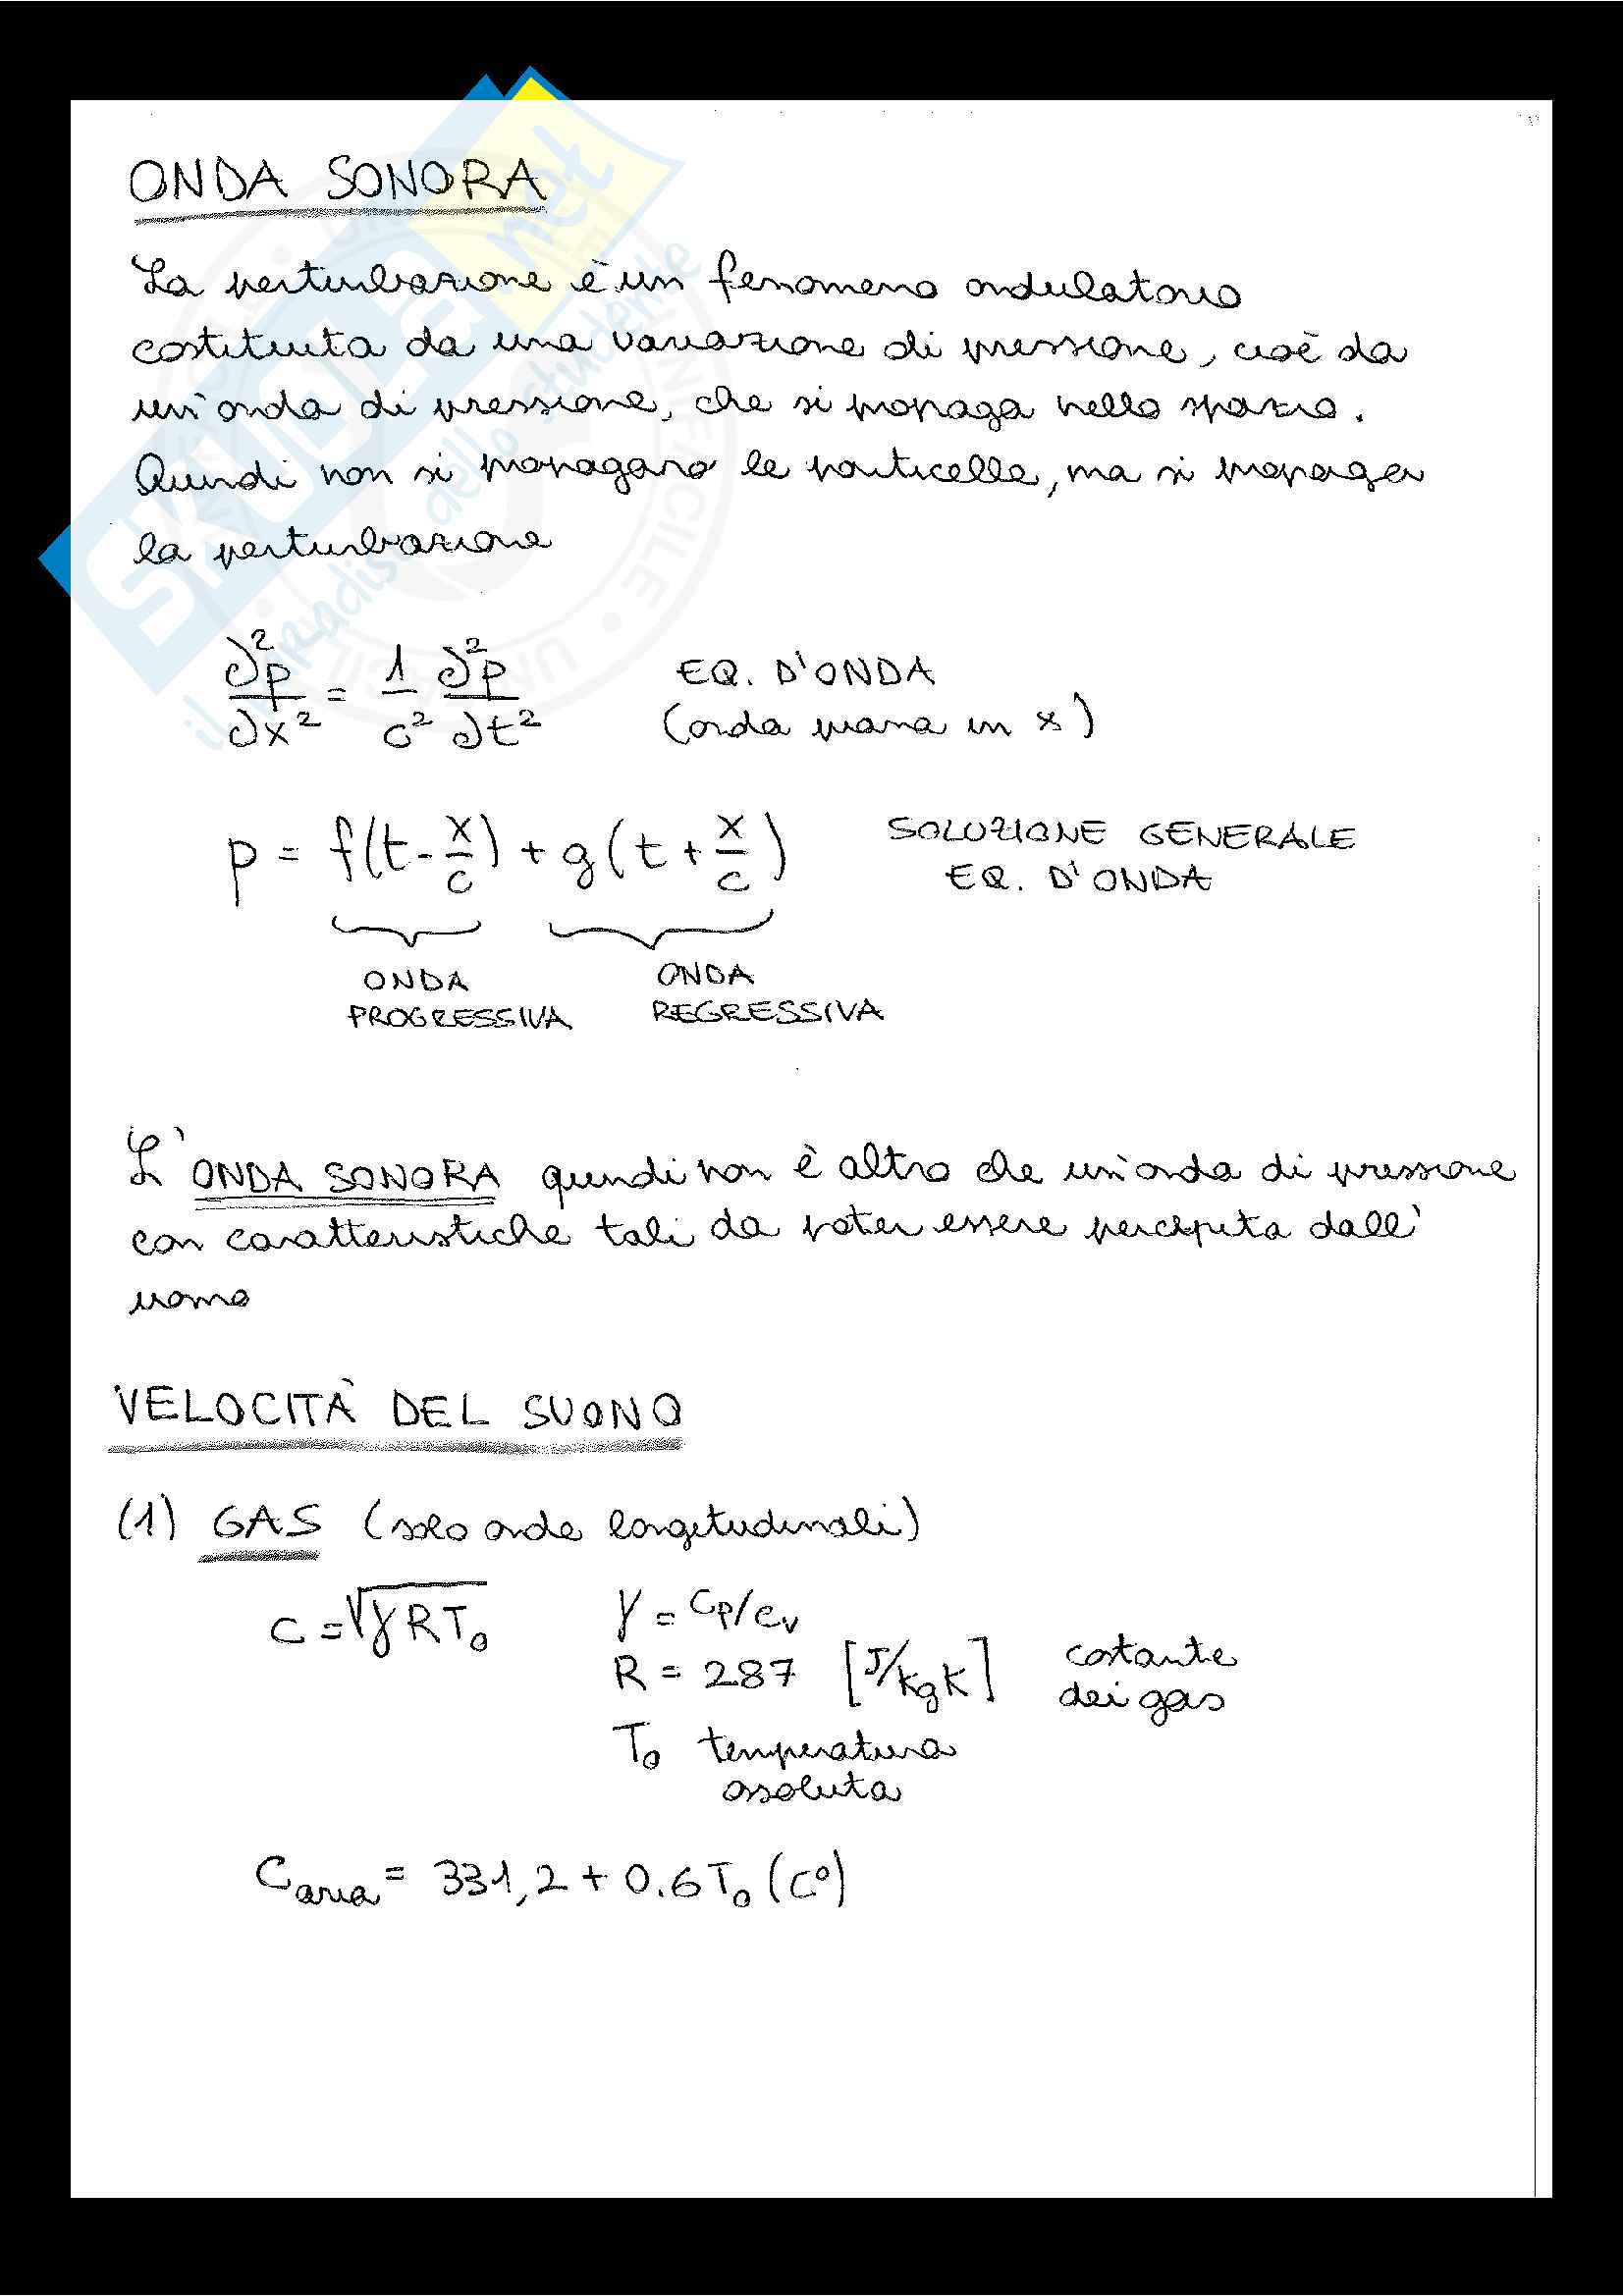 ONDA SONORA
La perturbazione è un fenomeno ondulatorio
costituita da una variazione di pressione, cioè da
un'onda di pressione, che si propaga nello spazio.
Quindi non si propagano le particelle, ma si propaga
la perturbazione
∂²p/∂x² = 1/c² ∂²p/∂t² EQ. D'ONDA
(onda piana in x)
p = f(t - x/c) + g(t + x/c) SOLUZIONE GENERALE
EQ. D'ONDA
ONDA ONDA
PROGRESSIVA REGRESSIVA
L'ONDA SONORA quindi non è altro che un'onda di pressione
con caratteristiche tali da poter essere percepita dall'
uomo
VELOCITÀ DEL SUONO
(1) GAS (solo onde longitudinali)
c = √γRT₀ γ = cp/cv
R = 287 [J/kgK] costante
dei gas
T₀ temperatura
assoluta
Caria = 331,2 + 0.6T₀(C°)
SKUOLA.net
il paradiso dello studente